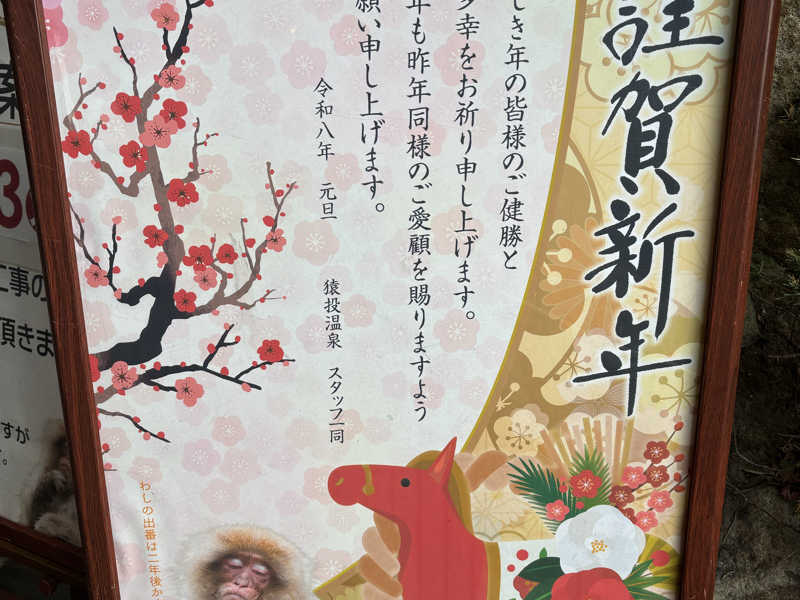 謹賀新年
しき年の皆様のご健勝と
多幸をお祈り申し上げます。
年も昨年同様のご愛顧を賜りますよう
願い申し上げます。
令和八年 元旦
猿投温泉 スタッフ一同
わしの出番は二年後か
3
工事の
頂きま
すが
。